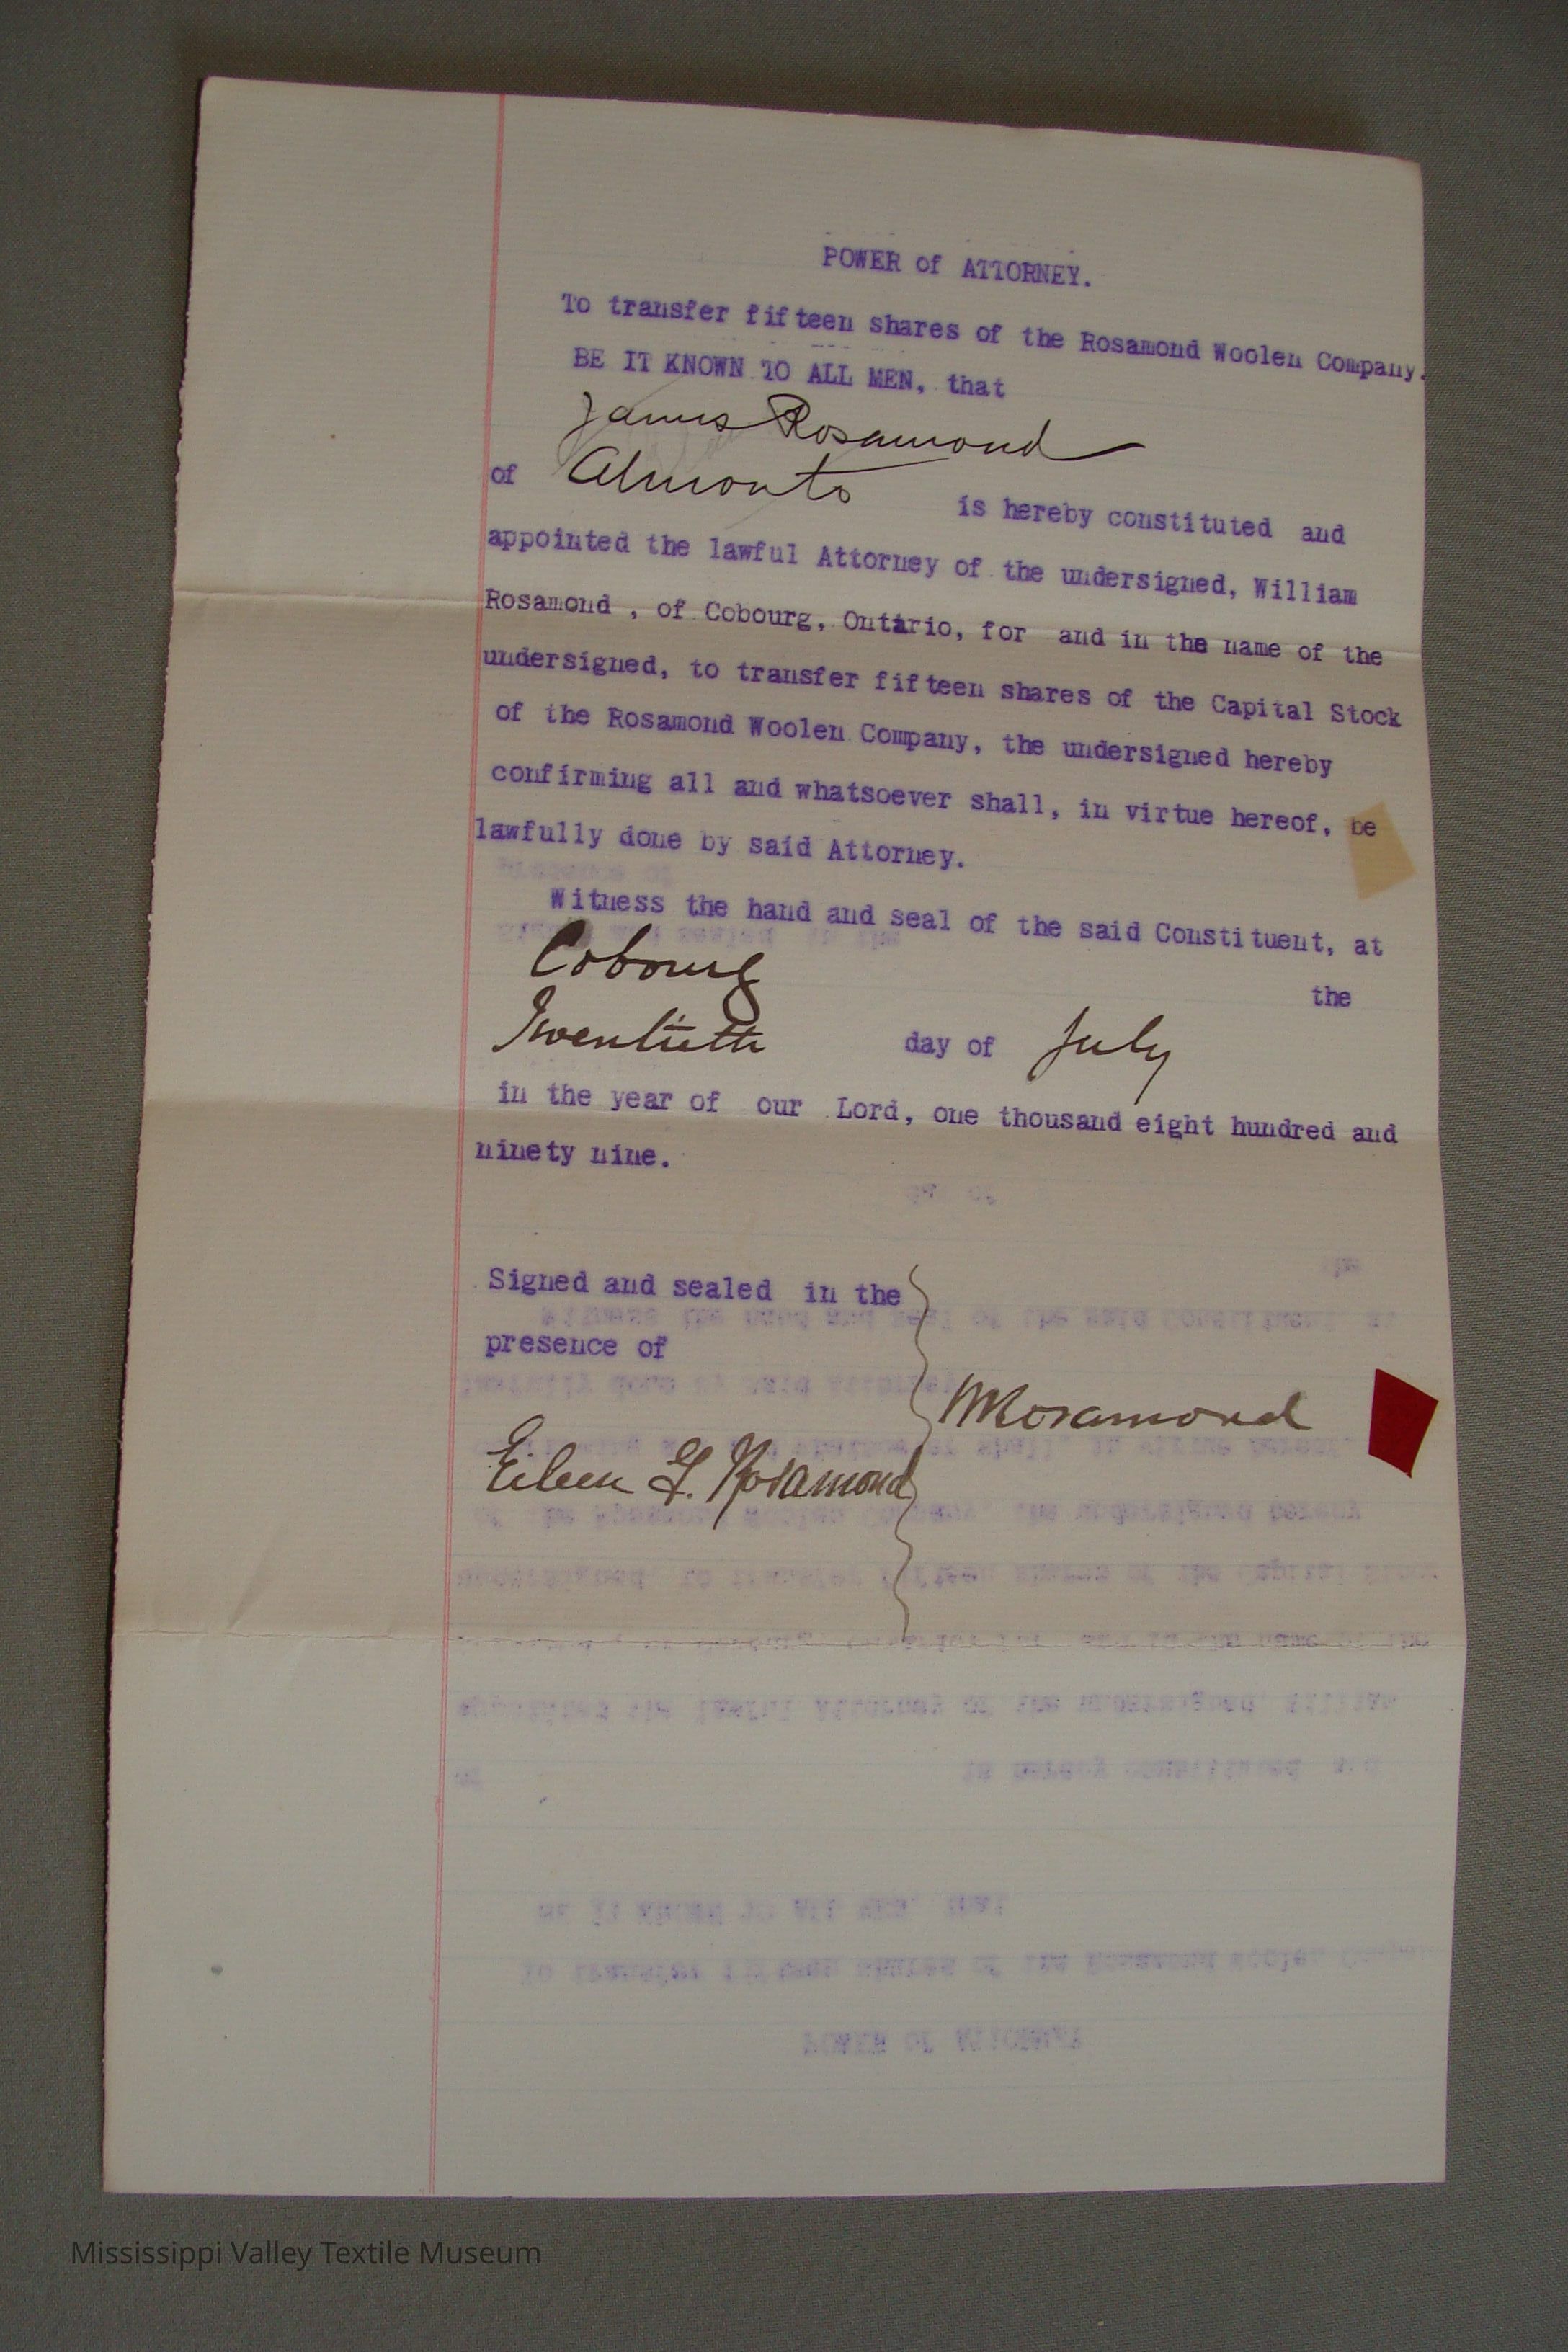 POWER of ATTORNEY.
To transfer fifteen shares of the Rosamond Woolen Company.
BE IT KNOWN TO ALL MEN, that
James Rosamond
of Almonte is hereby constituted and
appointed the lawful Attorney of the undersigned, William
Rosamond , of Cobourg, Ontario, for and in the name of the
undersigned, to transfer fifteen shares of the Capital Stock
of the Rosamond Woolen Company, the undersigned hereby
confirming all and whatsoever shall, in virtue hereof, be
lawfully done by said Attorney.
Witness the hand and seal of the said Constituent, at
Cobourg the
Twentieth day of July
in the year of our Lord, one thousand eight hundred and
ninety nine.
Signed and sealed in the
presence of
WRosamond
Eileen G. Rosamond
Mississippi Valley Textile Museum